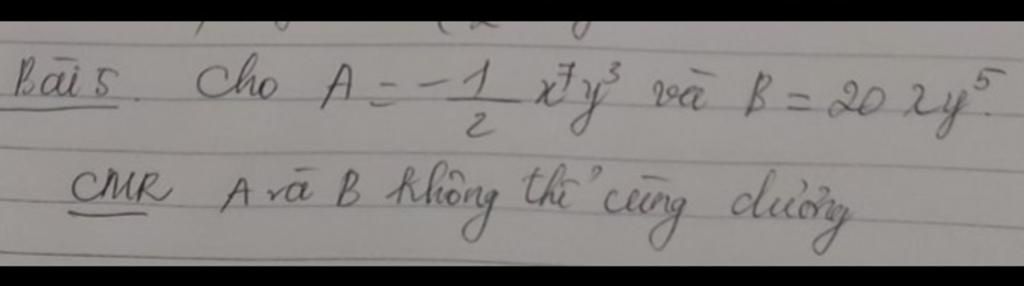 Bài 5. Cho A = -1/2 x⁷y³ và B = 20 xy⁵.
CMR A và B không thể cùng dương